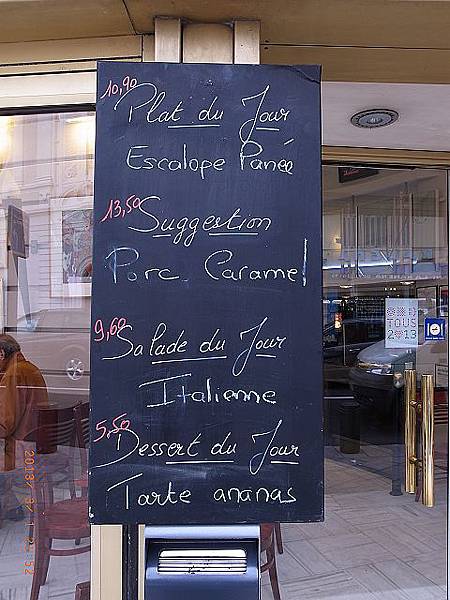 10,90
Plat du Jour
Escalope Panée
13,50
Suggestion
Porc Caramel
9,60
Salade du Jour
Italienne
5,50
Dessert du Jour
Tarte ananas
TOUS
2013